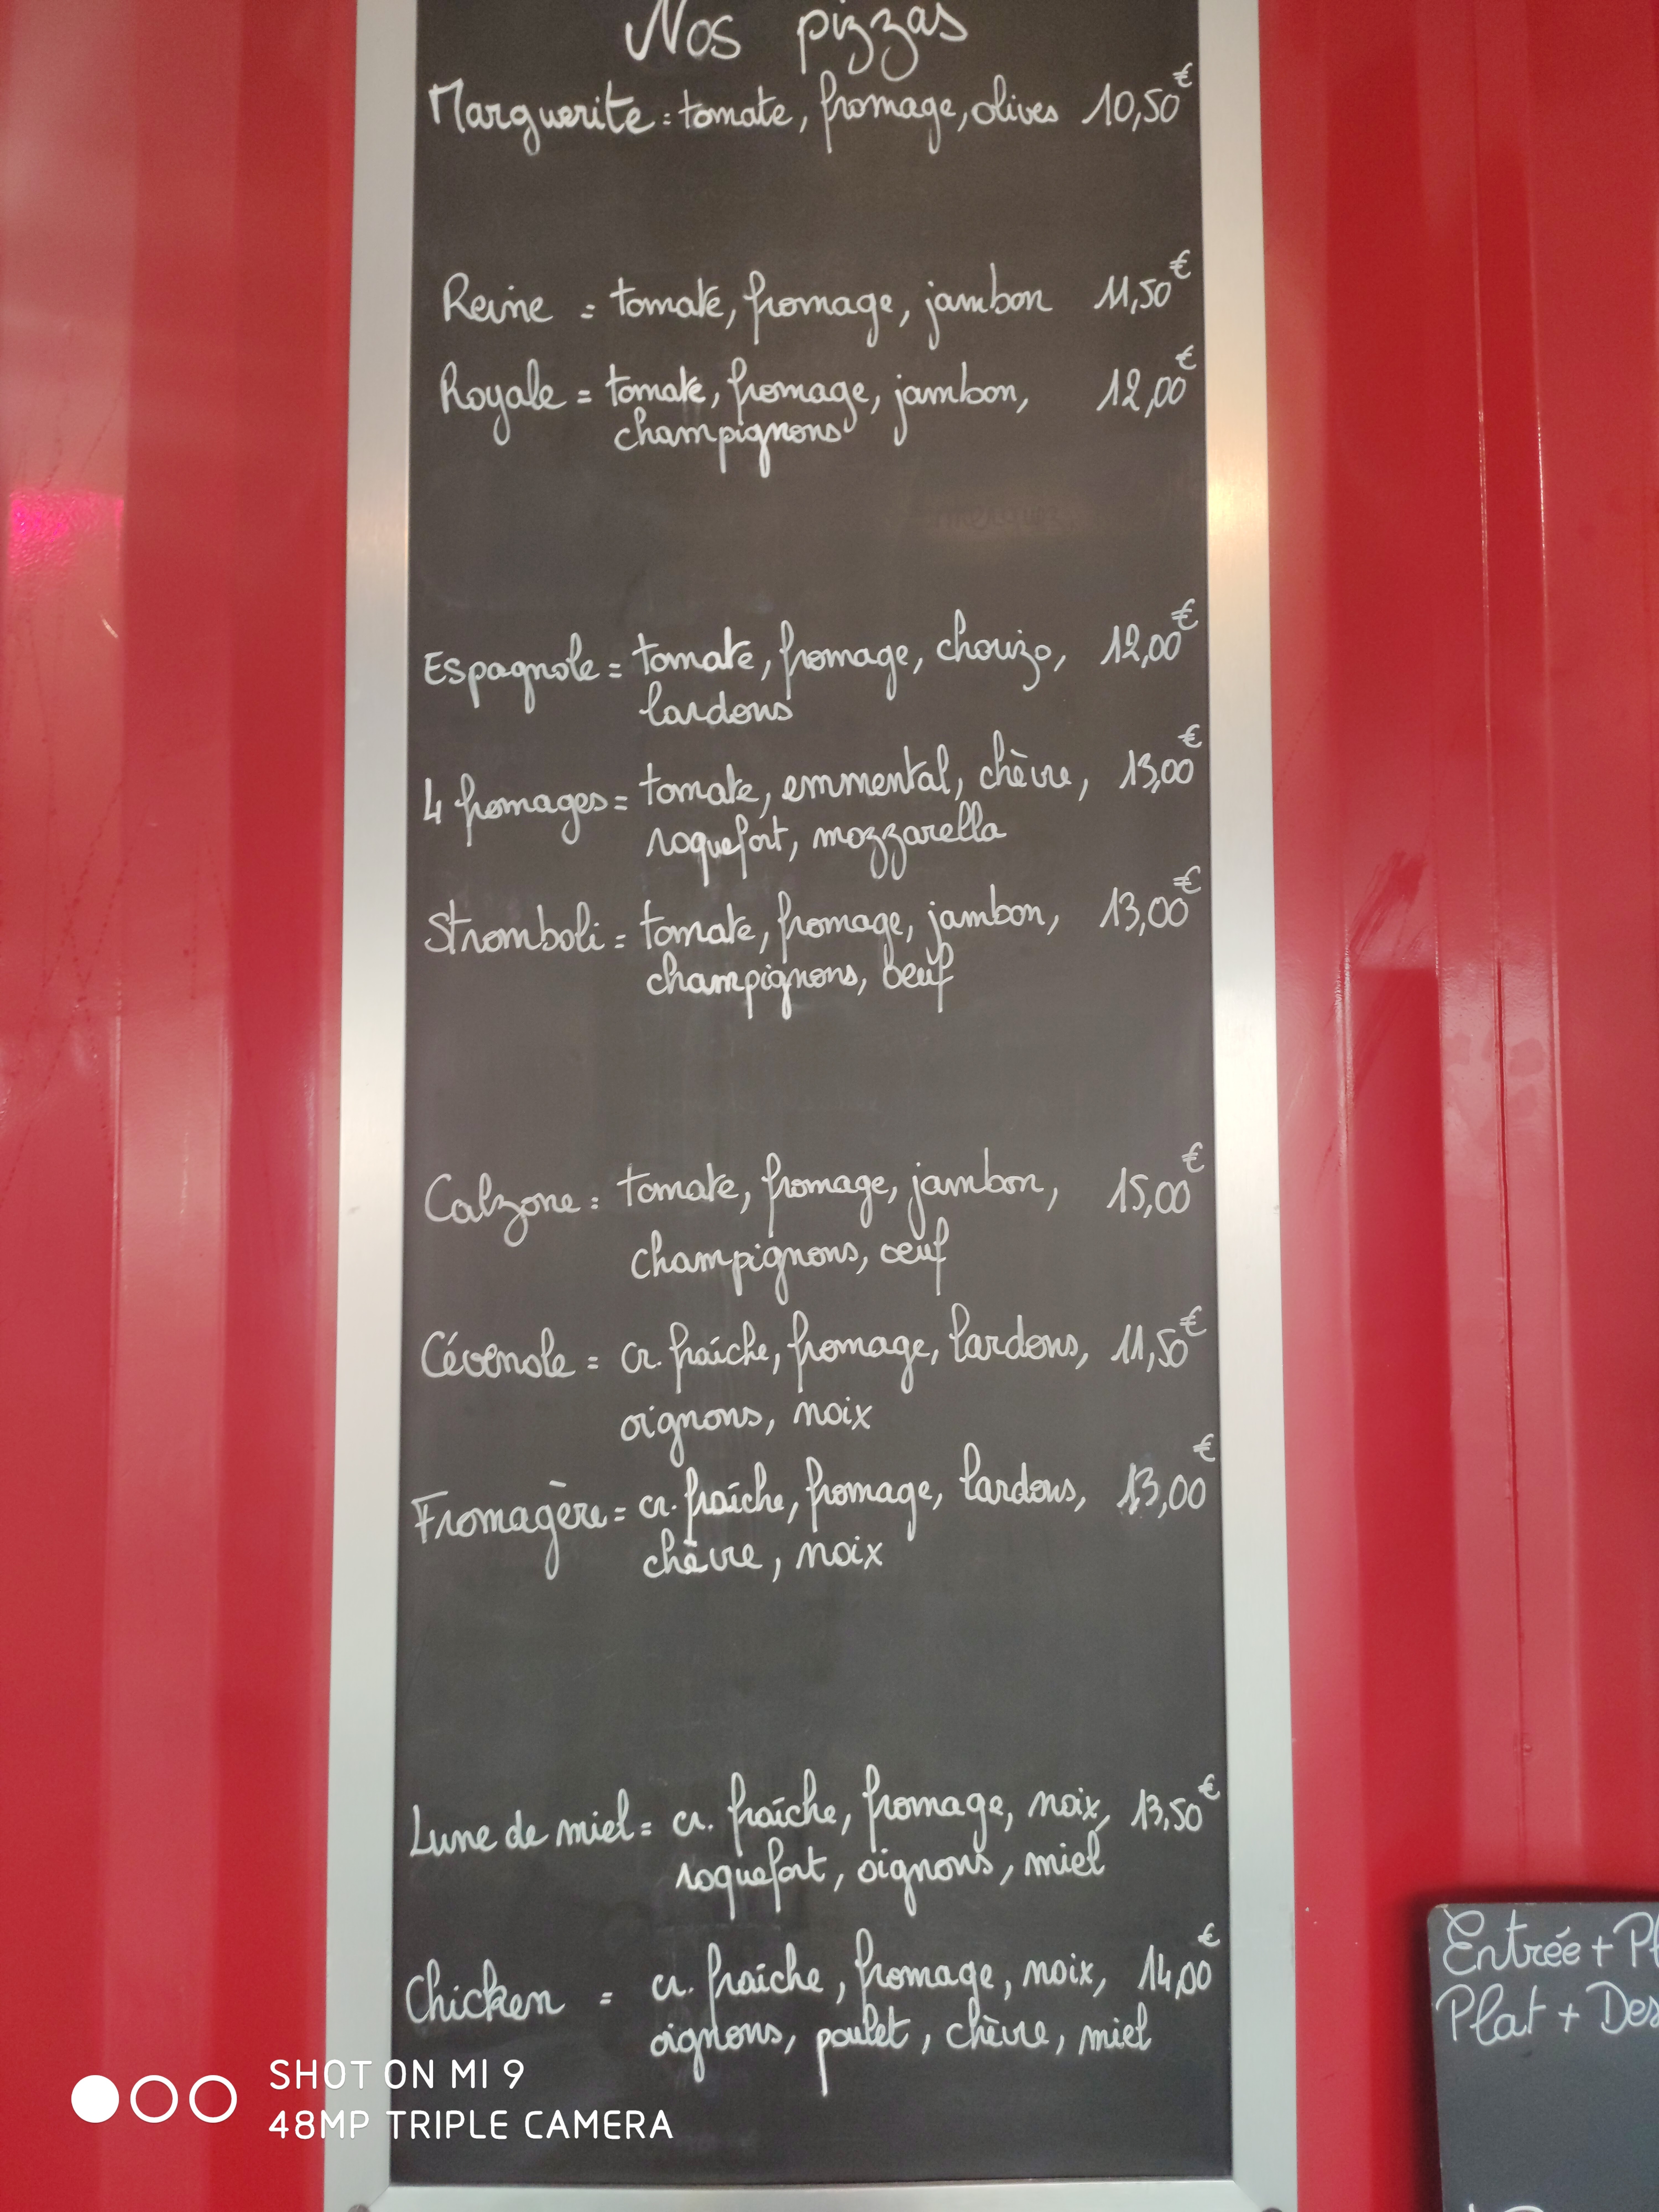 Nos pizzas
Marguerite = tomate, fromage, olives 10,50€
Reine = tomate, fromage, jambon 11,50€
Royale = tomate, fromage, jambon, 12,00€
champignons
Espagnole = tomate, fromage, chorizo, 12,00€
lardons
4 fromages = tomate, emmental, chèvre, 13,00€
roquefort, mozzarella
Stromboli = tomate, fromage, jambon, 13,00€
champignons, beuf
Calzone = tomate, fromage, jambon, 15,00€
champignons, oeuf
Cévenole = cr. fraîche, fromage, lardons, 11,50€
oignons, noix
Fromagère = cr. fraîche, fromage, lardons, 13,00€
chèvre, noix
Lune de miel = cr. fraîche, fromage, noix, 13,50€
roquefort, oignons, miel
Chicken = cr. fraîche, fromage, noix, 14,00€
oignons, poulet, chèvre, miel
Entrée + Pl
Plat + Des
SHOT ON MI 9
48MP TRIPLE CAMERA